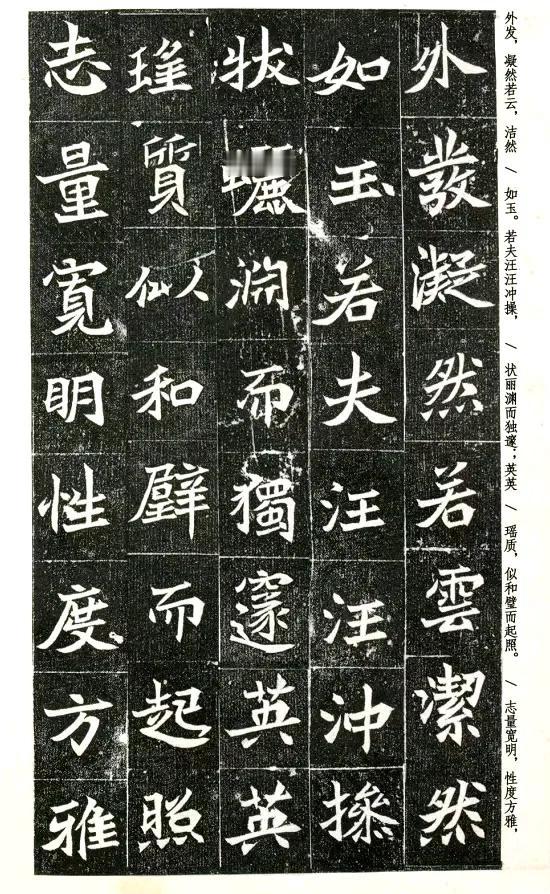 外发，凝然若云，洁然 \ 如玉。若夫汪汪冲操， \ 状丽渊而独邃；英英 \ 瑶质，似和璧而起照。 \ 志量宽明，性度方雅，
外發凝然若雲潔然
如玉若夫汪汪沖操
狀淵而獨邃英英
瑤質似和璧而起照
志量寬明性度方雅